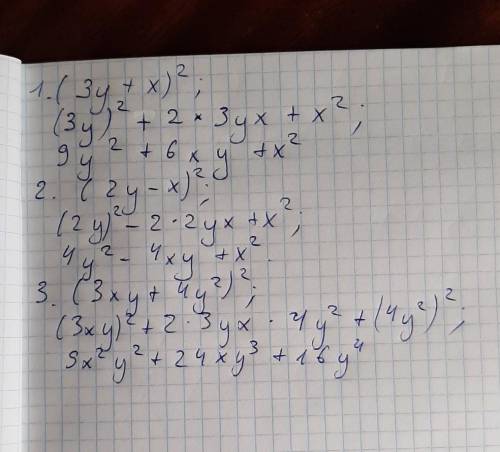 1. (3y + x)²;
(3y)² + 2 · 3yx + x²;
9y² + 6xy + x²
2. (2y - x)²;
(2y)² - 2 · 2yx + x²;
4y² - 4xy + x².
3. (3xy + 4y²)²;
(3xy)² + 2 · 3yx · 4y² + (4y²)²;
9x²y² + 24xy³ + 16y⁴